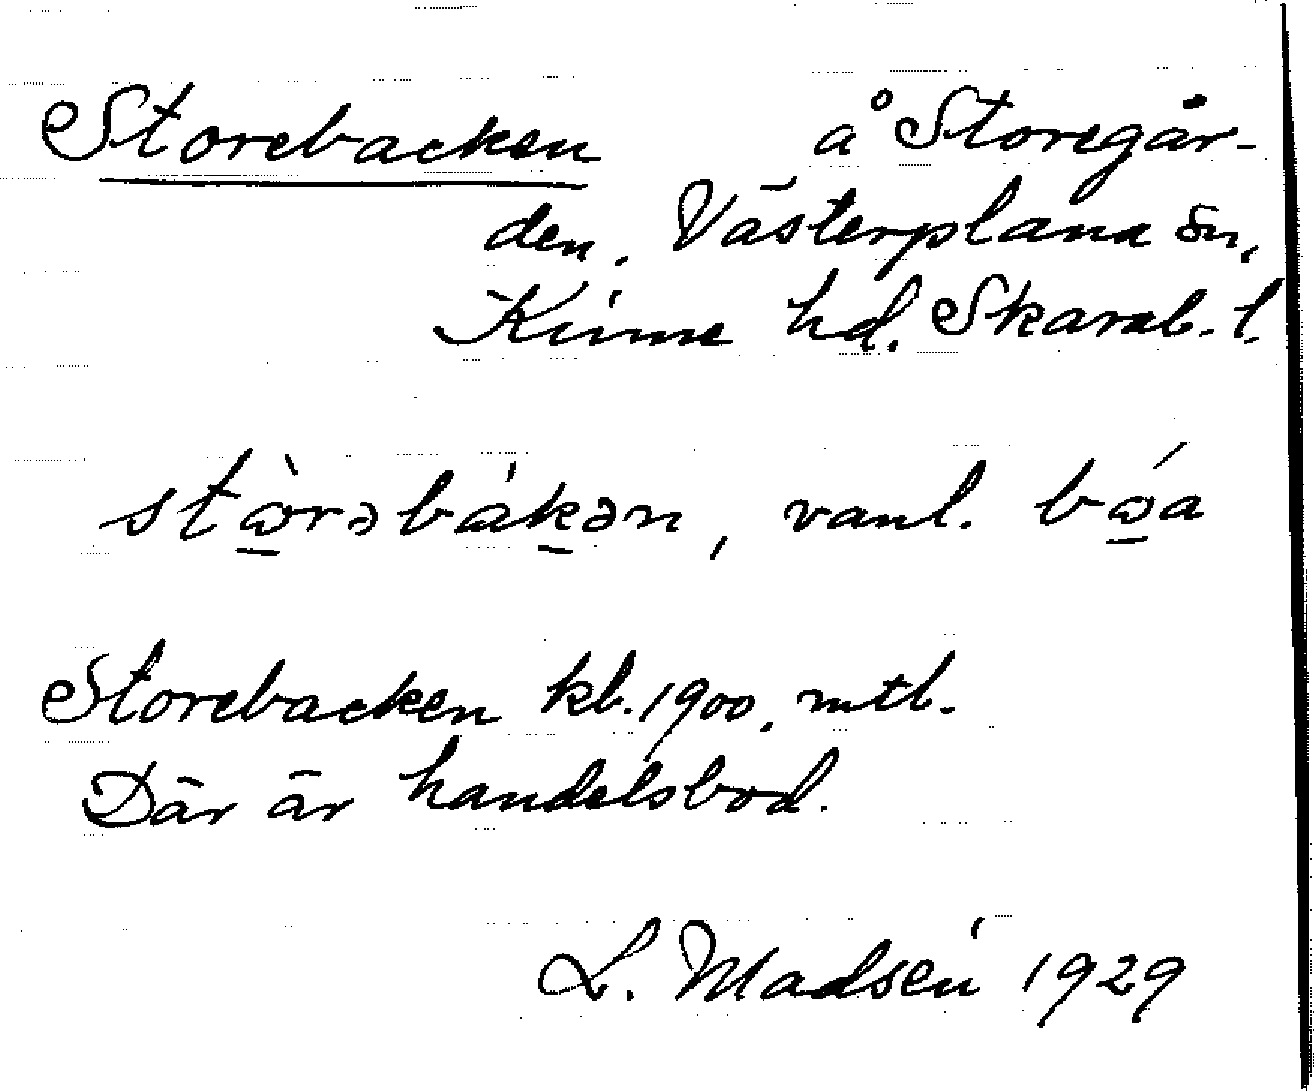 Storebacken å Storegår-
den. Västerplana sn,
Kinne hd. Skarab. l.
stòrəbàkən, vanl. bóa
Storebacken kb. 1900. mtl.
Där är handelsbod.
L. Madsén 1929